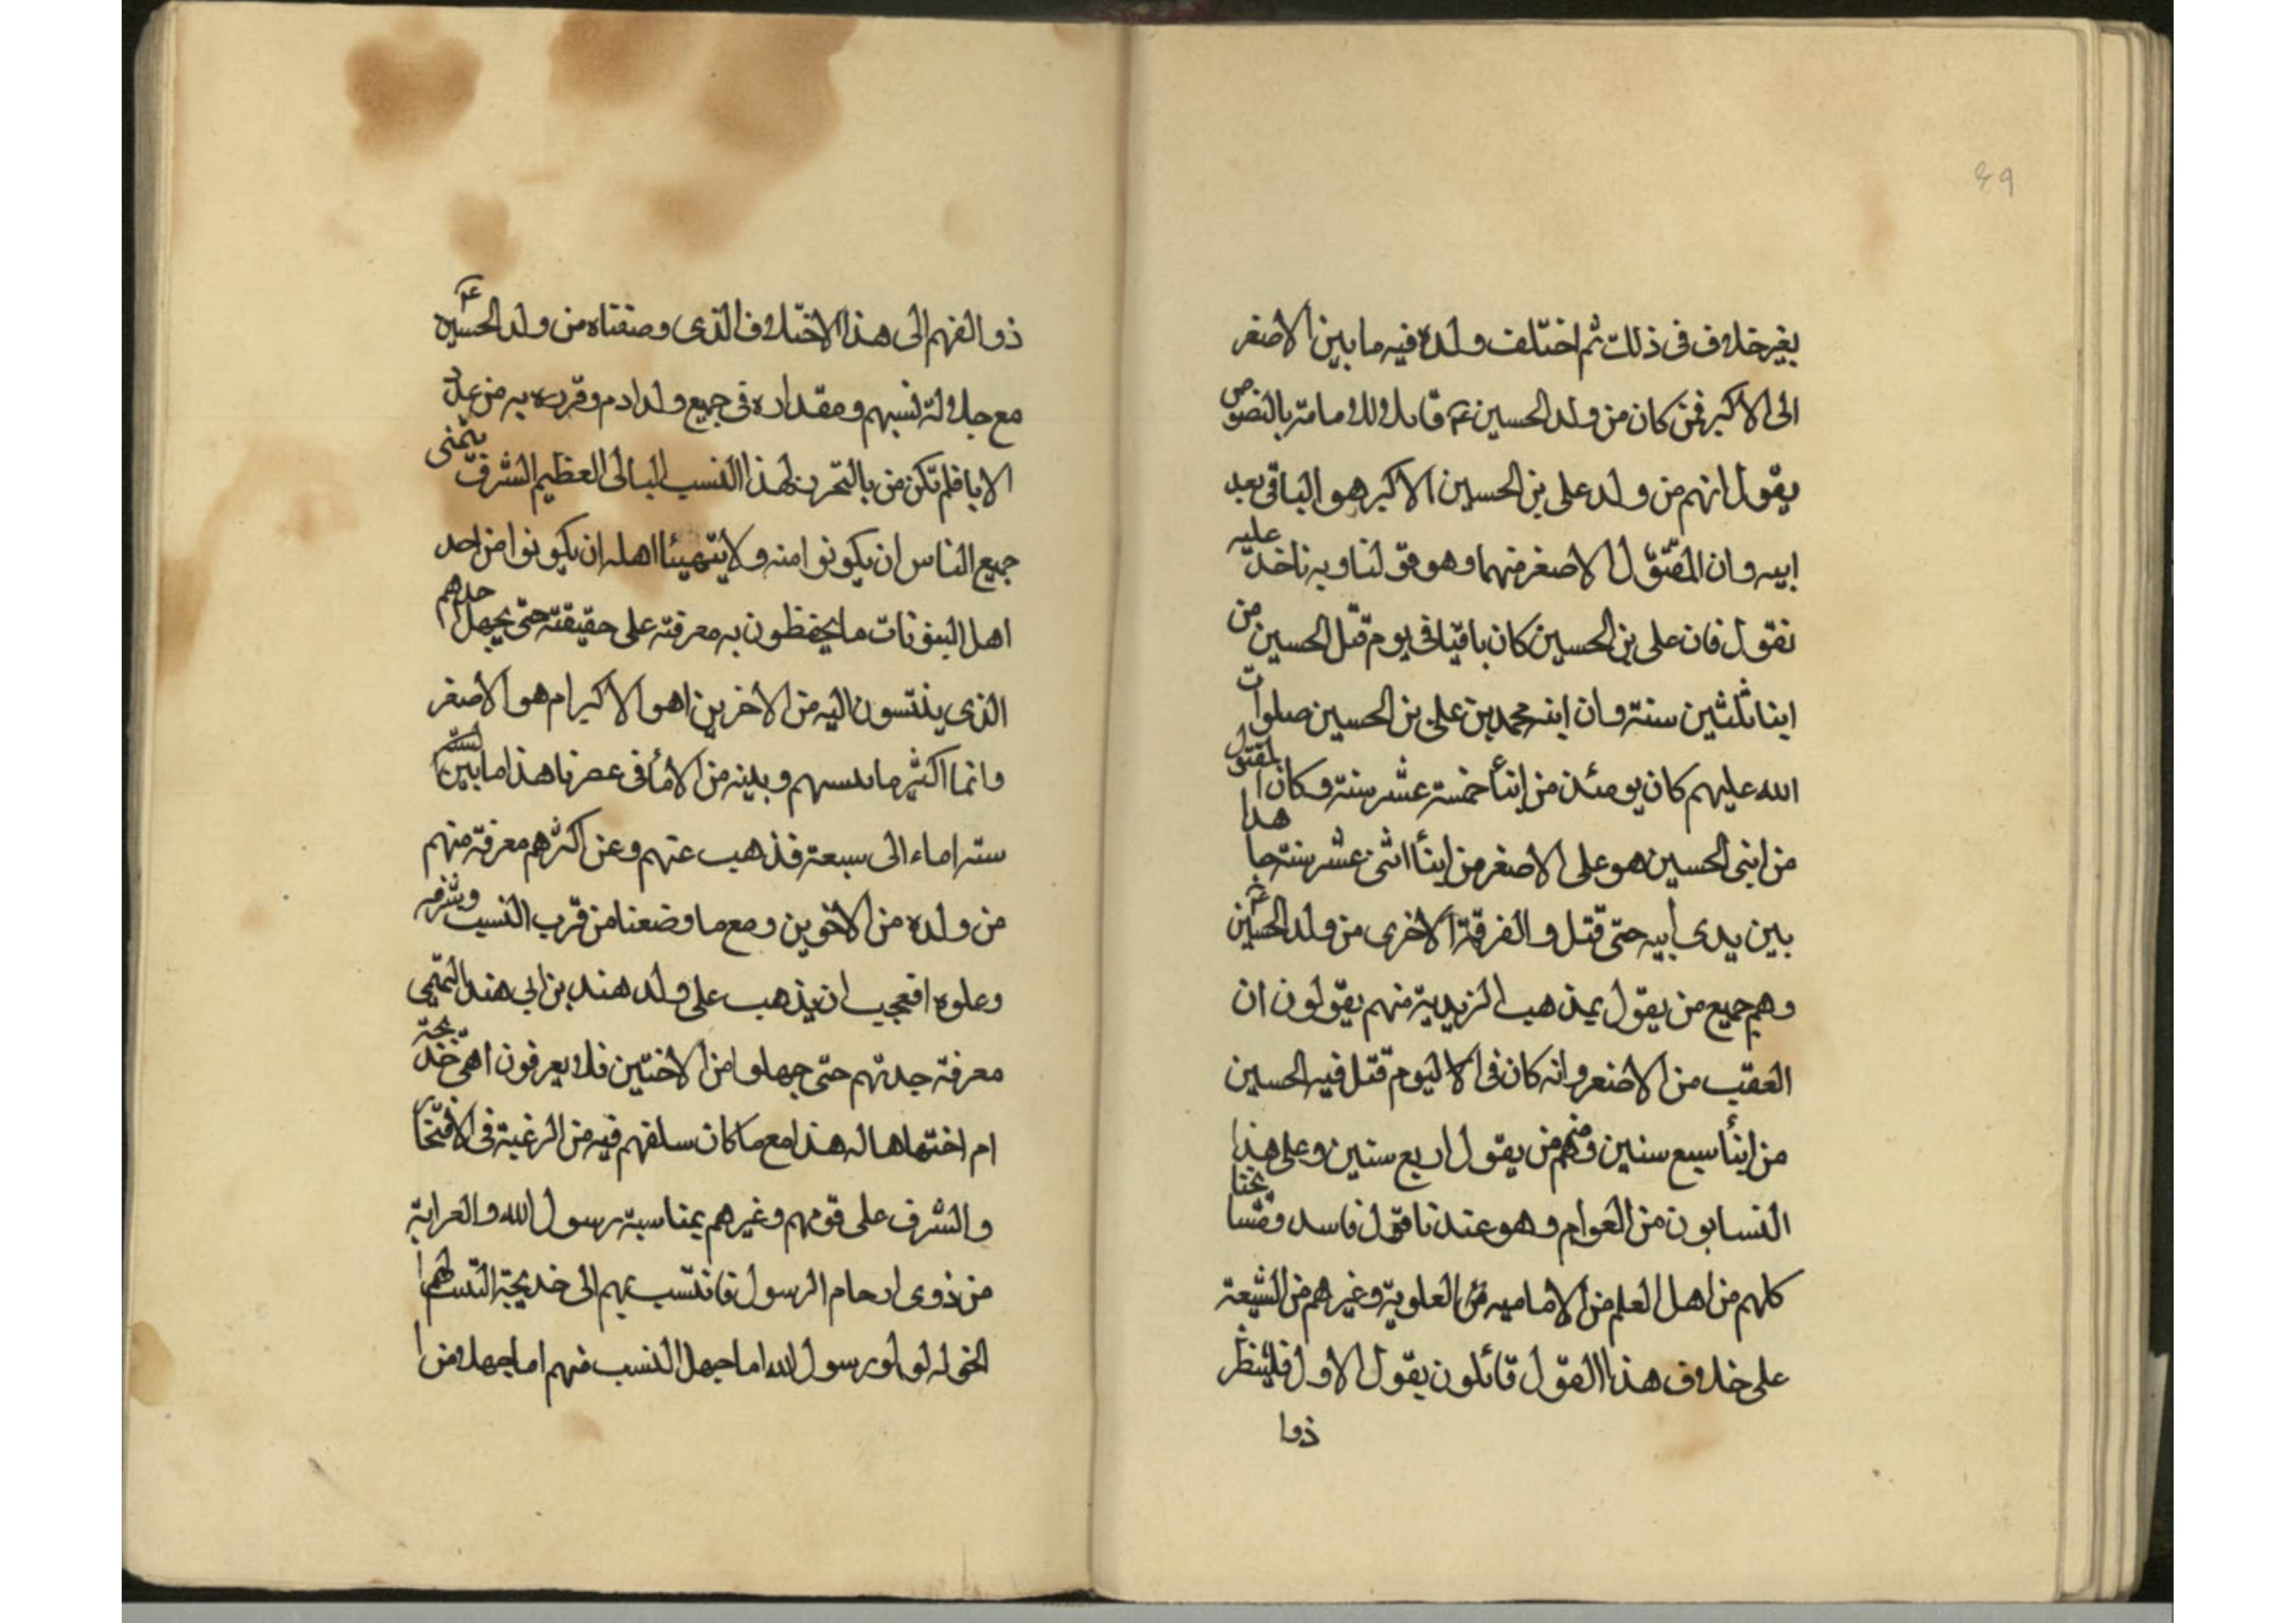 ٤٩
بغير خلاف فى ذلك ثم اختلف ولده فيه ما بين الاصغر
الى الاكبر فمن كان من ولد الحسين عم قايلا للامامة بالنصوص
يقول انهم من ولد على بن الحسين الاكبر هو الباقى بعد
ابيه وان المقتول الاصغر منهما وهو قولنا وبه ناخذ عليه
نقول فان على بن الحسين كان باقيا فى يوم قتل الحسين من
ابنا ثلثين سنة وان ابنه محمد بن على بن الحسين صلوات
الله عليهم كان يومئذ من ابنأ خمسة عشر سنة وكان المقتول
من ابنى الحسين هو على الاصغر من ابنأ اثنى عشر سنة جاهدا
بين يدى أبيه حتى قتل والفرقة الاخرى من ولد الحسين عم
وهم جميع من يقول بمذهب الزيدية منهم يقولون ان
العقب من الاصغر وانه كان فى الا ليوم قتل فيه الحسين
من ابنأ سبع سنين ومنهم من يقول اربع سنين وعلى هذا
النسابون من العوام وهو عندنا قول فاسد
كلهم من اهل العلم من الاماميه من العلوية وغيرهم من الشيعة
على خلاف هذا القول قائلون بقول الاول فلينظر
ذوا
ذوالفهم الى هذا الاختلاف الذى وصفناه من ولد الحسين عم
مع جلالة نسبهم ومقداره فى جميع ولد ادم وقربه به من عدد
الابا فلم تكن من بالتحرز لهذا النسب العظيم الشرف يتمنى
جميع الناس ان يكونوا منه ولا يتهيئا اهله ان يكونوا من احد
اهل البيوتات ما يحفظون به معرفته على حقيقته حتى يجهل
الذى ينتسون اليه من الاخرين اهو الاكبر ام هو الاصغر
وانما اكثر ما بينهم وبينه من الابأ فى عصرنا هذا ما بين
سته اماء الى سبعة فذهب عنهم وعن اكثرهم معرفة منهم
من ولده من الاخوين ومع ما وضعنا من قرب النسب
وعلوه افعجيب ان يذهب على ولد هند بن ابى هند التميمى
معرفة جدتهم حتى جهلوا من الاختين فلا يعرفون اهى خديجة
ام اختها هاله هذا مع ما كان سلفهم فيه من الرغبة فى الافتخار
والشرف على قومهم وغيرهم بمناسبة رسول الله والعرابة
من ذوى ارحام الرسول فانتسب بهم الى خديجة
رسول الله اما جهل النسب منهم اما جهلا من ا